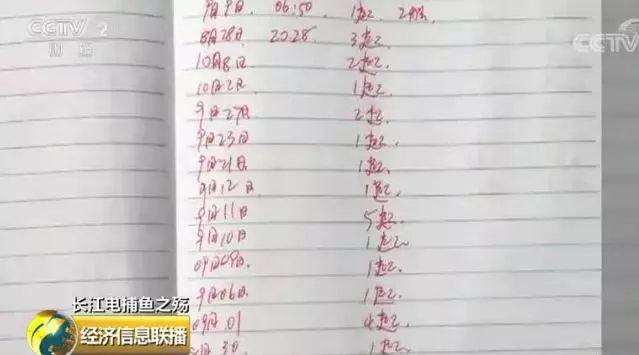 CCTV 2
财经
CCTV
9月9日 06:50 1起 2船
8月28日 20:28 3起
10月8日 2起
10月2日 1起
9月27日 2起
9月23日 1起
9月21日 1起
9月12日 1起
9月11日 5起
9月10日 1起
09月09日 1起
9月06日 1起
09月01 4起
月30 1起
长江电捕鱼之殇
经济信息联播